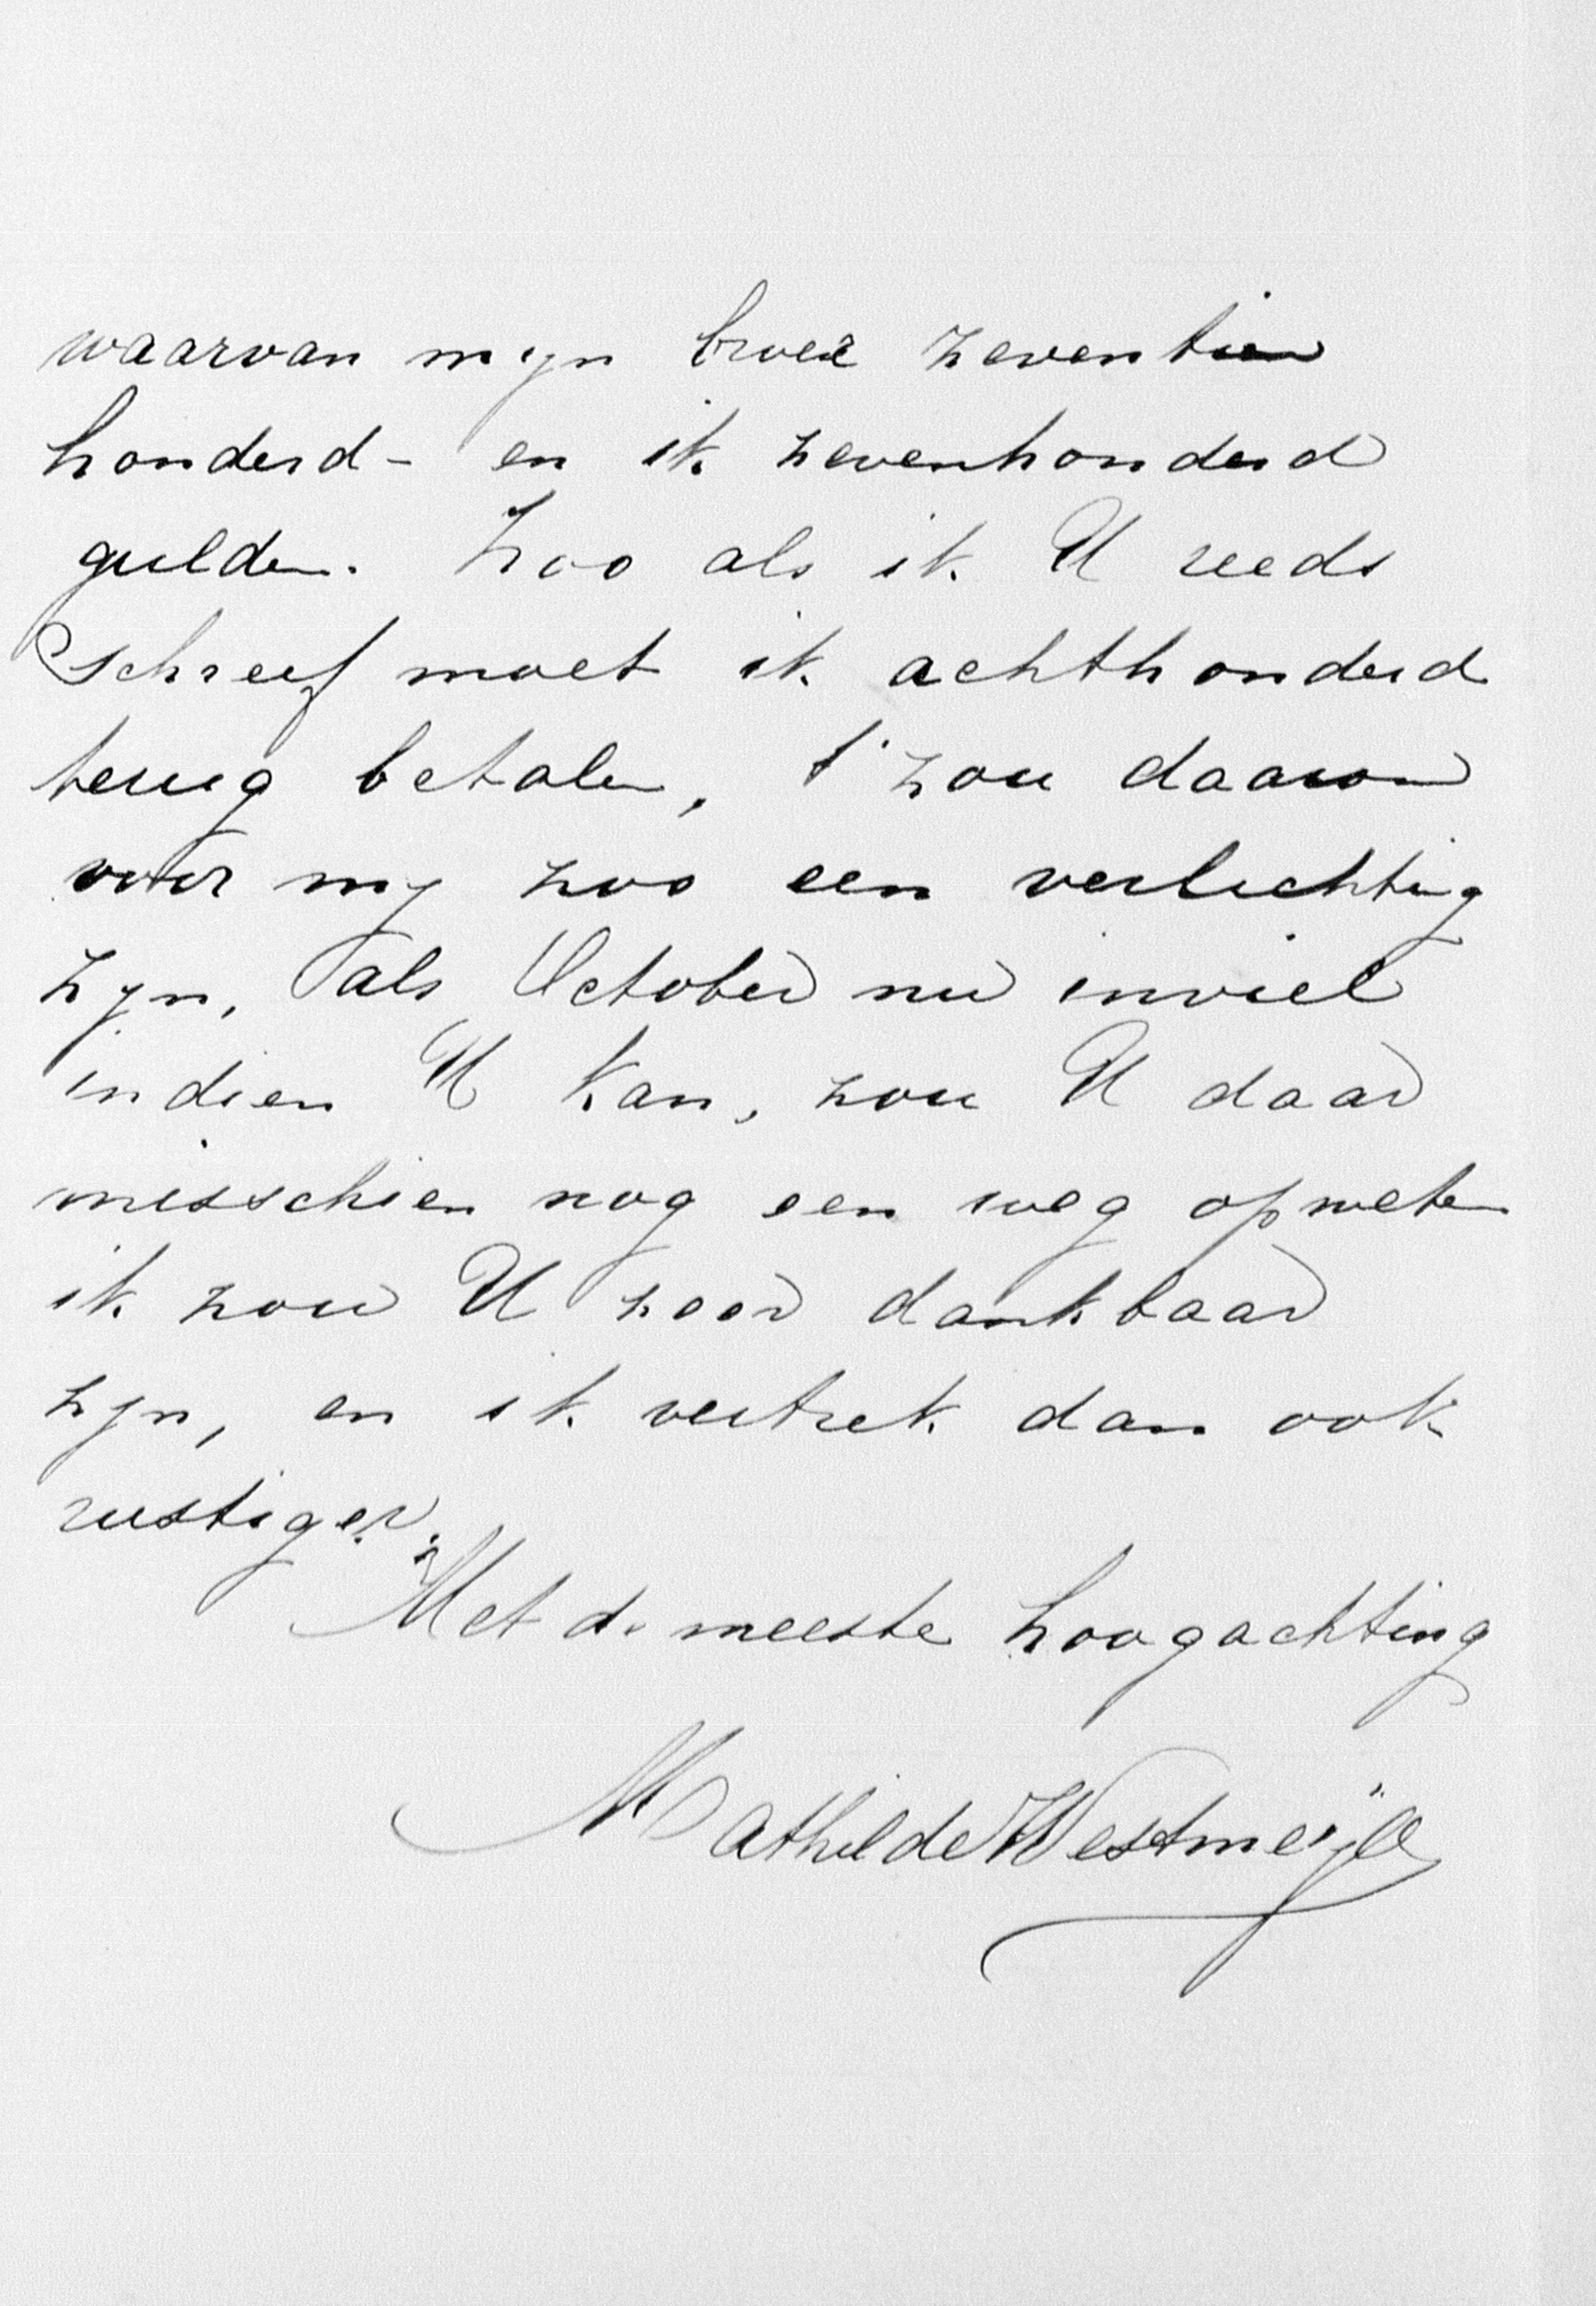 waarvan mijn broer zeventien
honderd- en ik zevenhonderd
gulden. Zoo als ik U reeds
schreef moet ik achthonderd
terug betalen, 't zou daarom
voor mij zoo een verlichting
zijn, als October nu inviel
indien U kan, zou U daar
misschien nog een weg op weten
ik zou U zeer dankbaar
zijn, en ik vertrek dan ook
rustiger.
Met de meeste hoogachting
Mathilde Westmeijer